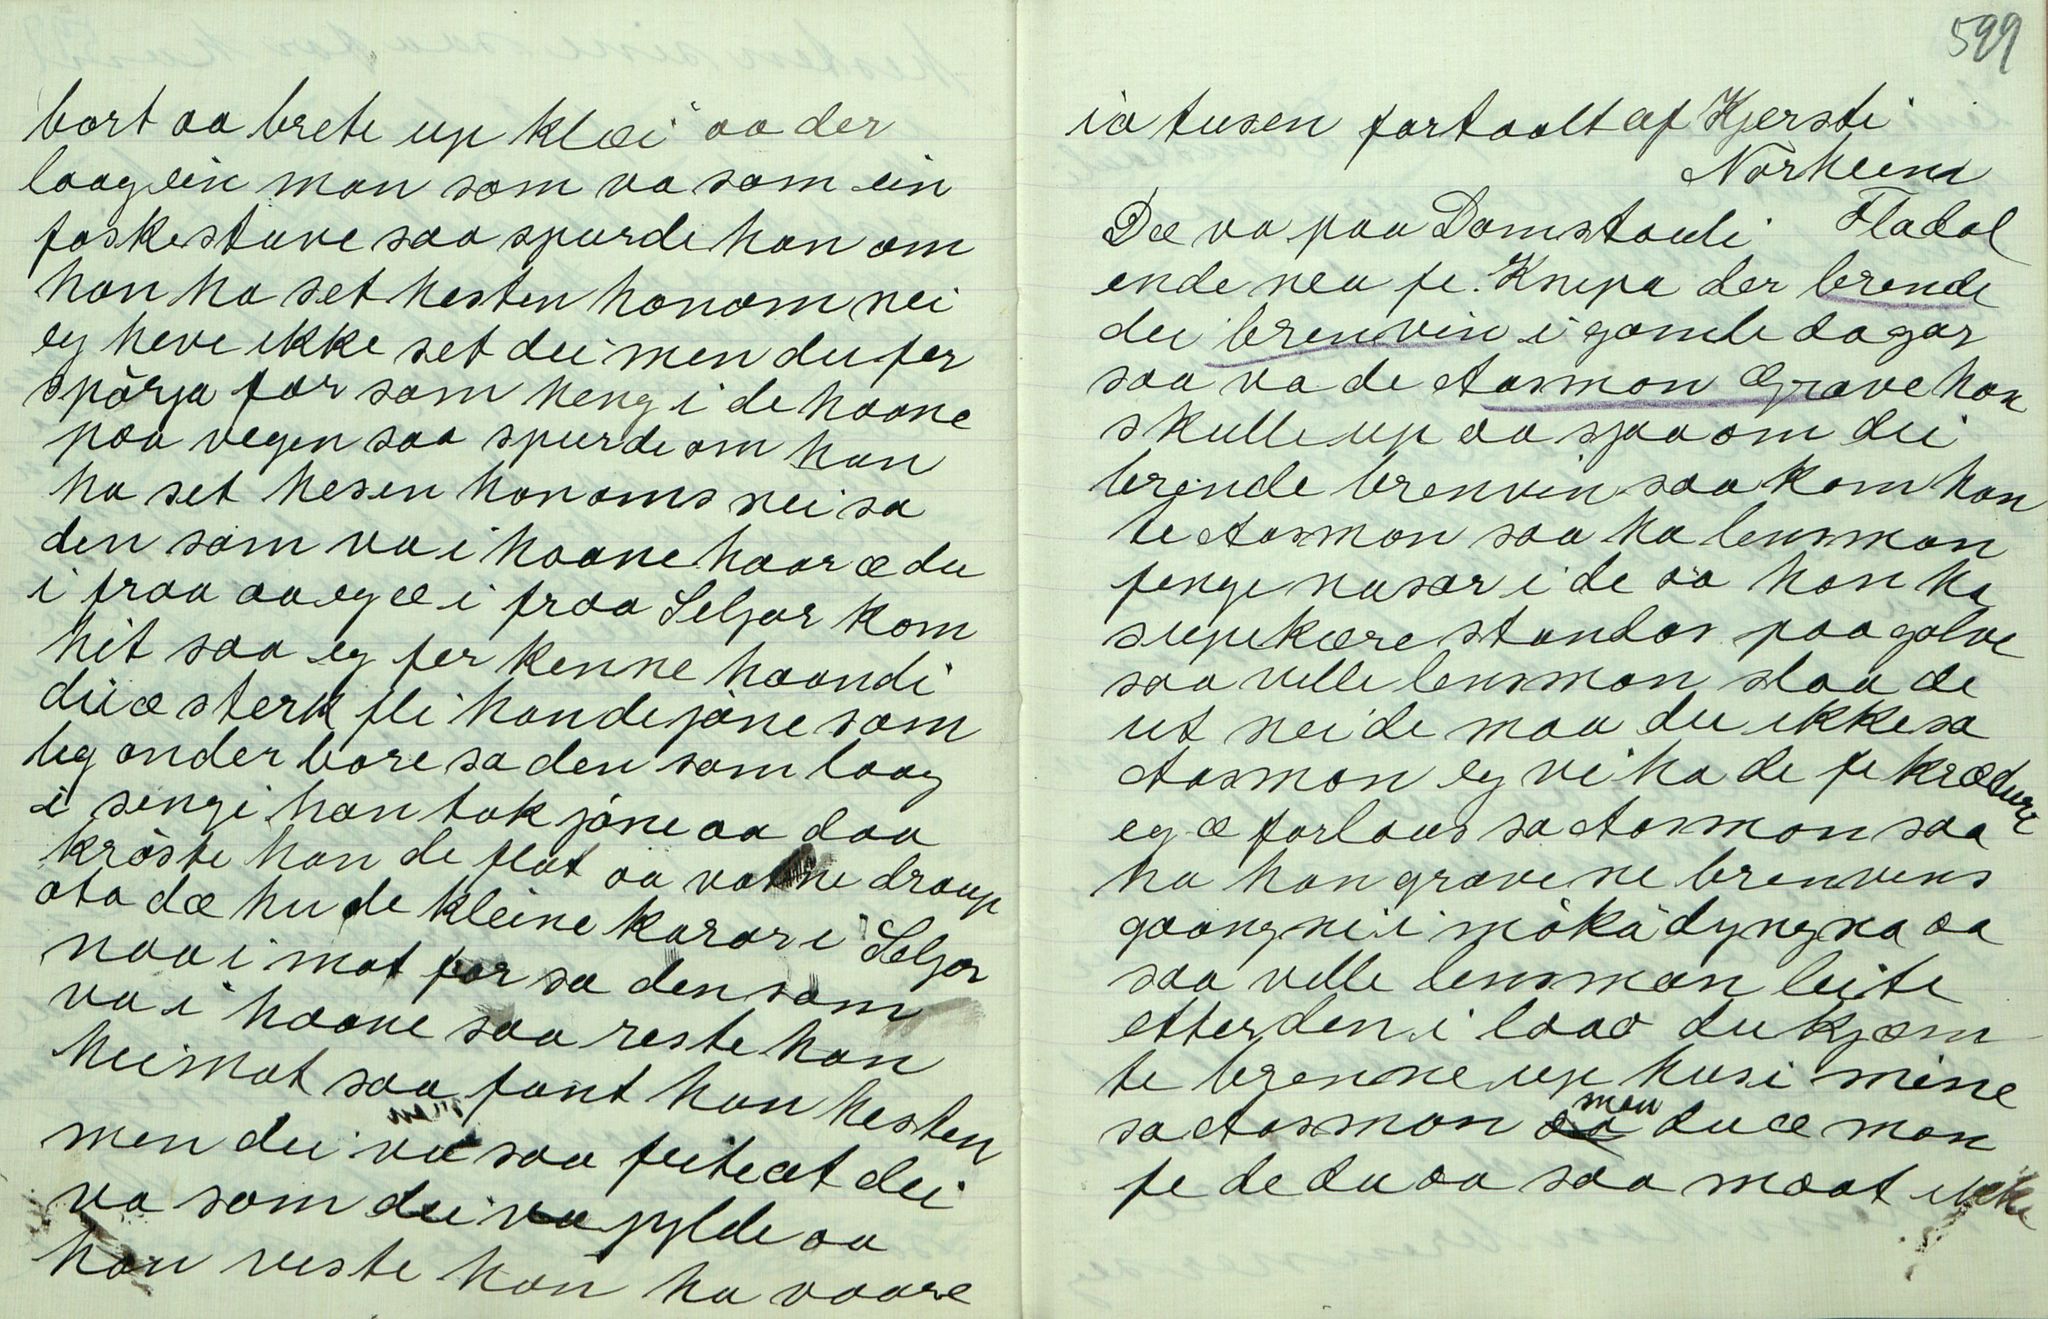 bort aa brete up klæi aa der
laag ein man som va som ein
foskestuve saa spurde han om
han ha set hesten honom nei
eg heve ikke set dei men du fer
spörja far som heng i de haane
paa vegen saa spurde om han
ha set hesen honoms nei sa
den som va i haane haar æ du
i fraa aa eg æ i fraa Seljor kom
hit saa eg fer kenne haandi
di æ sterk fli han de jöne som
lig onder bore sa den som laag
i sengi han tok jöne aa daa
kröste han de flat aa vatne draup
ota dæ hu de kleine karar i Seljor
naa i mot far sa den som
va i haane saa reste han
heimat saa fant han hesten
men dei va saa feite at dei
va som dei va fylde aa
han reiste han ha vaare
599
io tusen fortaalt af Kjersti
Norheim
Fladal
Dæ va paa Domstauli
ende nea fe. Knipa der brende
dei brenvin i gamle dagar
saa va de Aasmon Grave han
skulle up aa sjaa om dei
brende brenvin saa kom han
te Aasmon saa ha lensmon
fenge nasar i de aa han ha
supekære standas paa golve
saa ville lensmon slaa de
ut nei de maa du ikke sa
Aasmon eg vi ha de fe krædure
eg æ forlaus sa Aasmon saa
ha han grave ne brenvins
gaang ne i möka dyngna aa
saa velle lensman leite
etter den i laao du kjæm
te brenne up husi mine
sa Aasmon men du æ mon
fe de du aa saa maat ikke